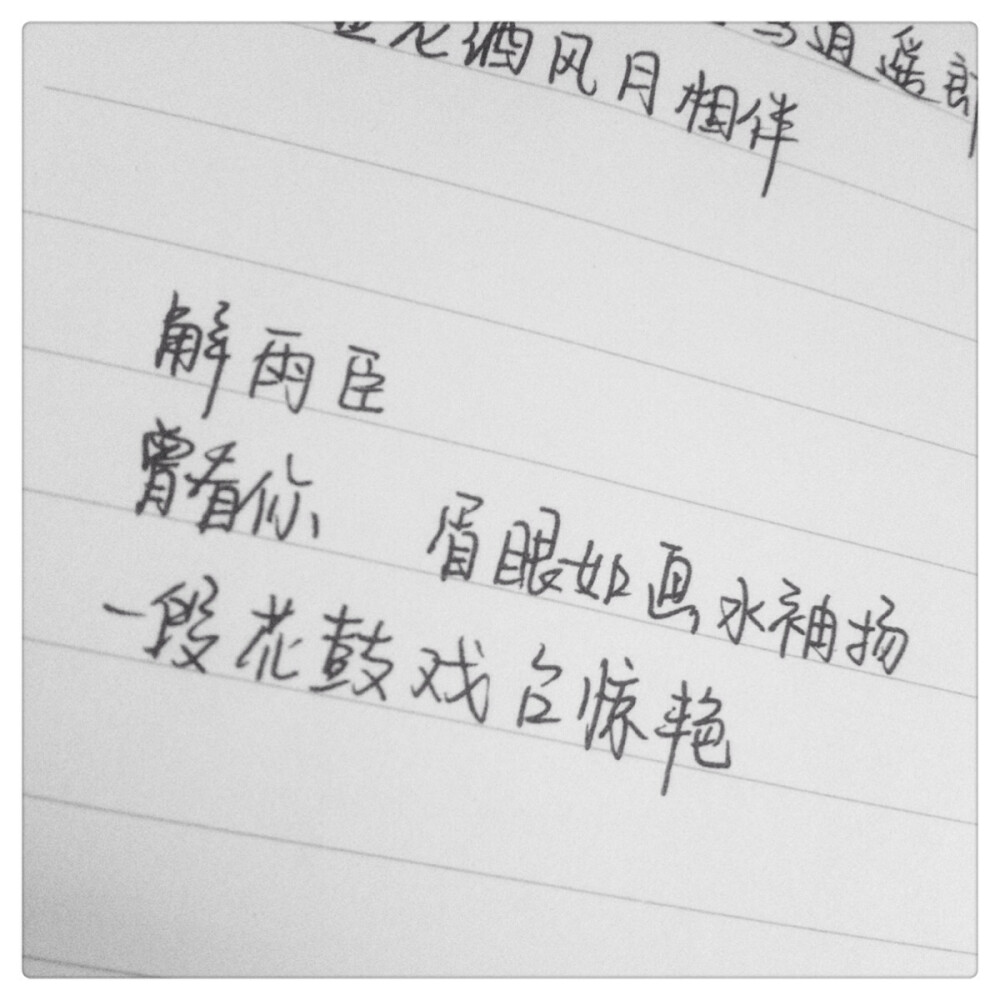 花酒风月相伴
逍遥郎
解雨臣
曾看你 眉眼如画水袖扬
一段花鼓戏台惊艳